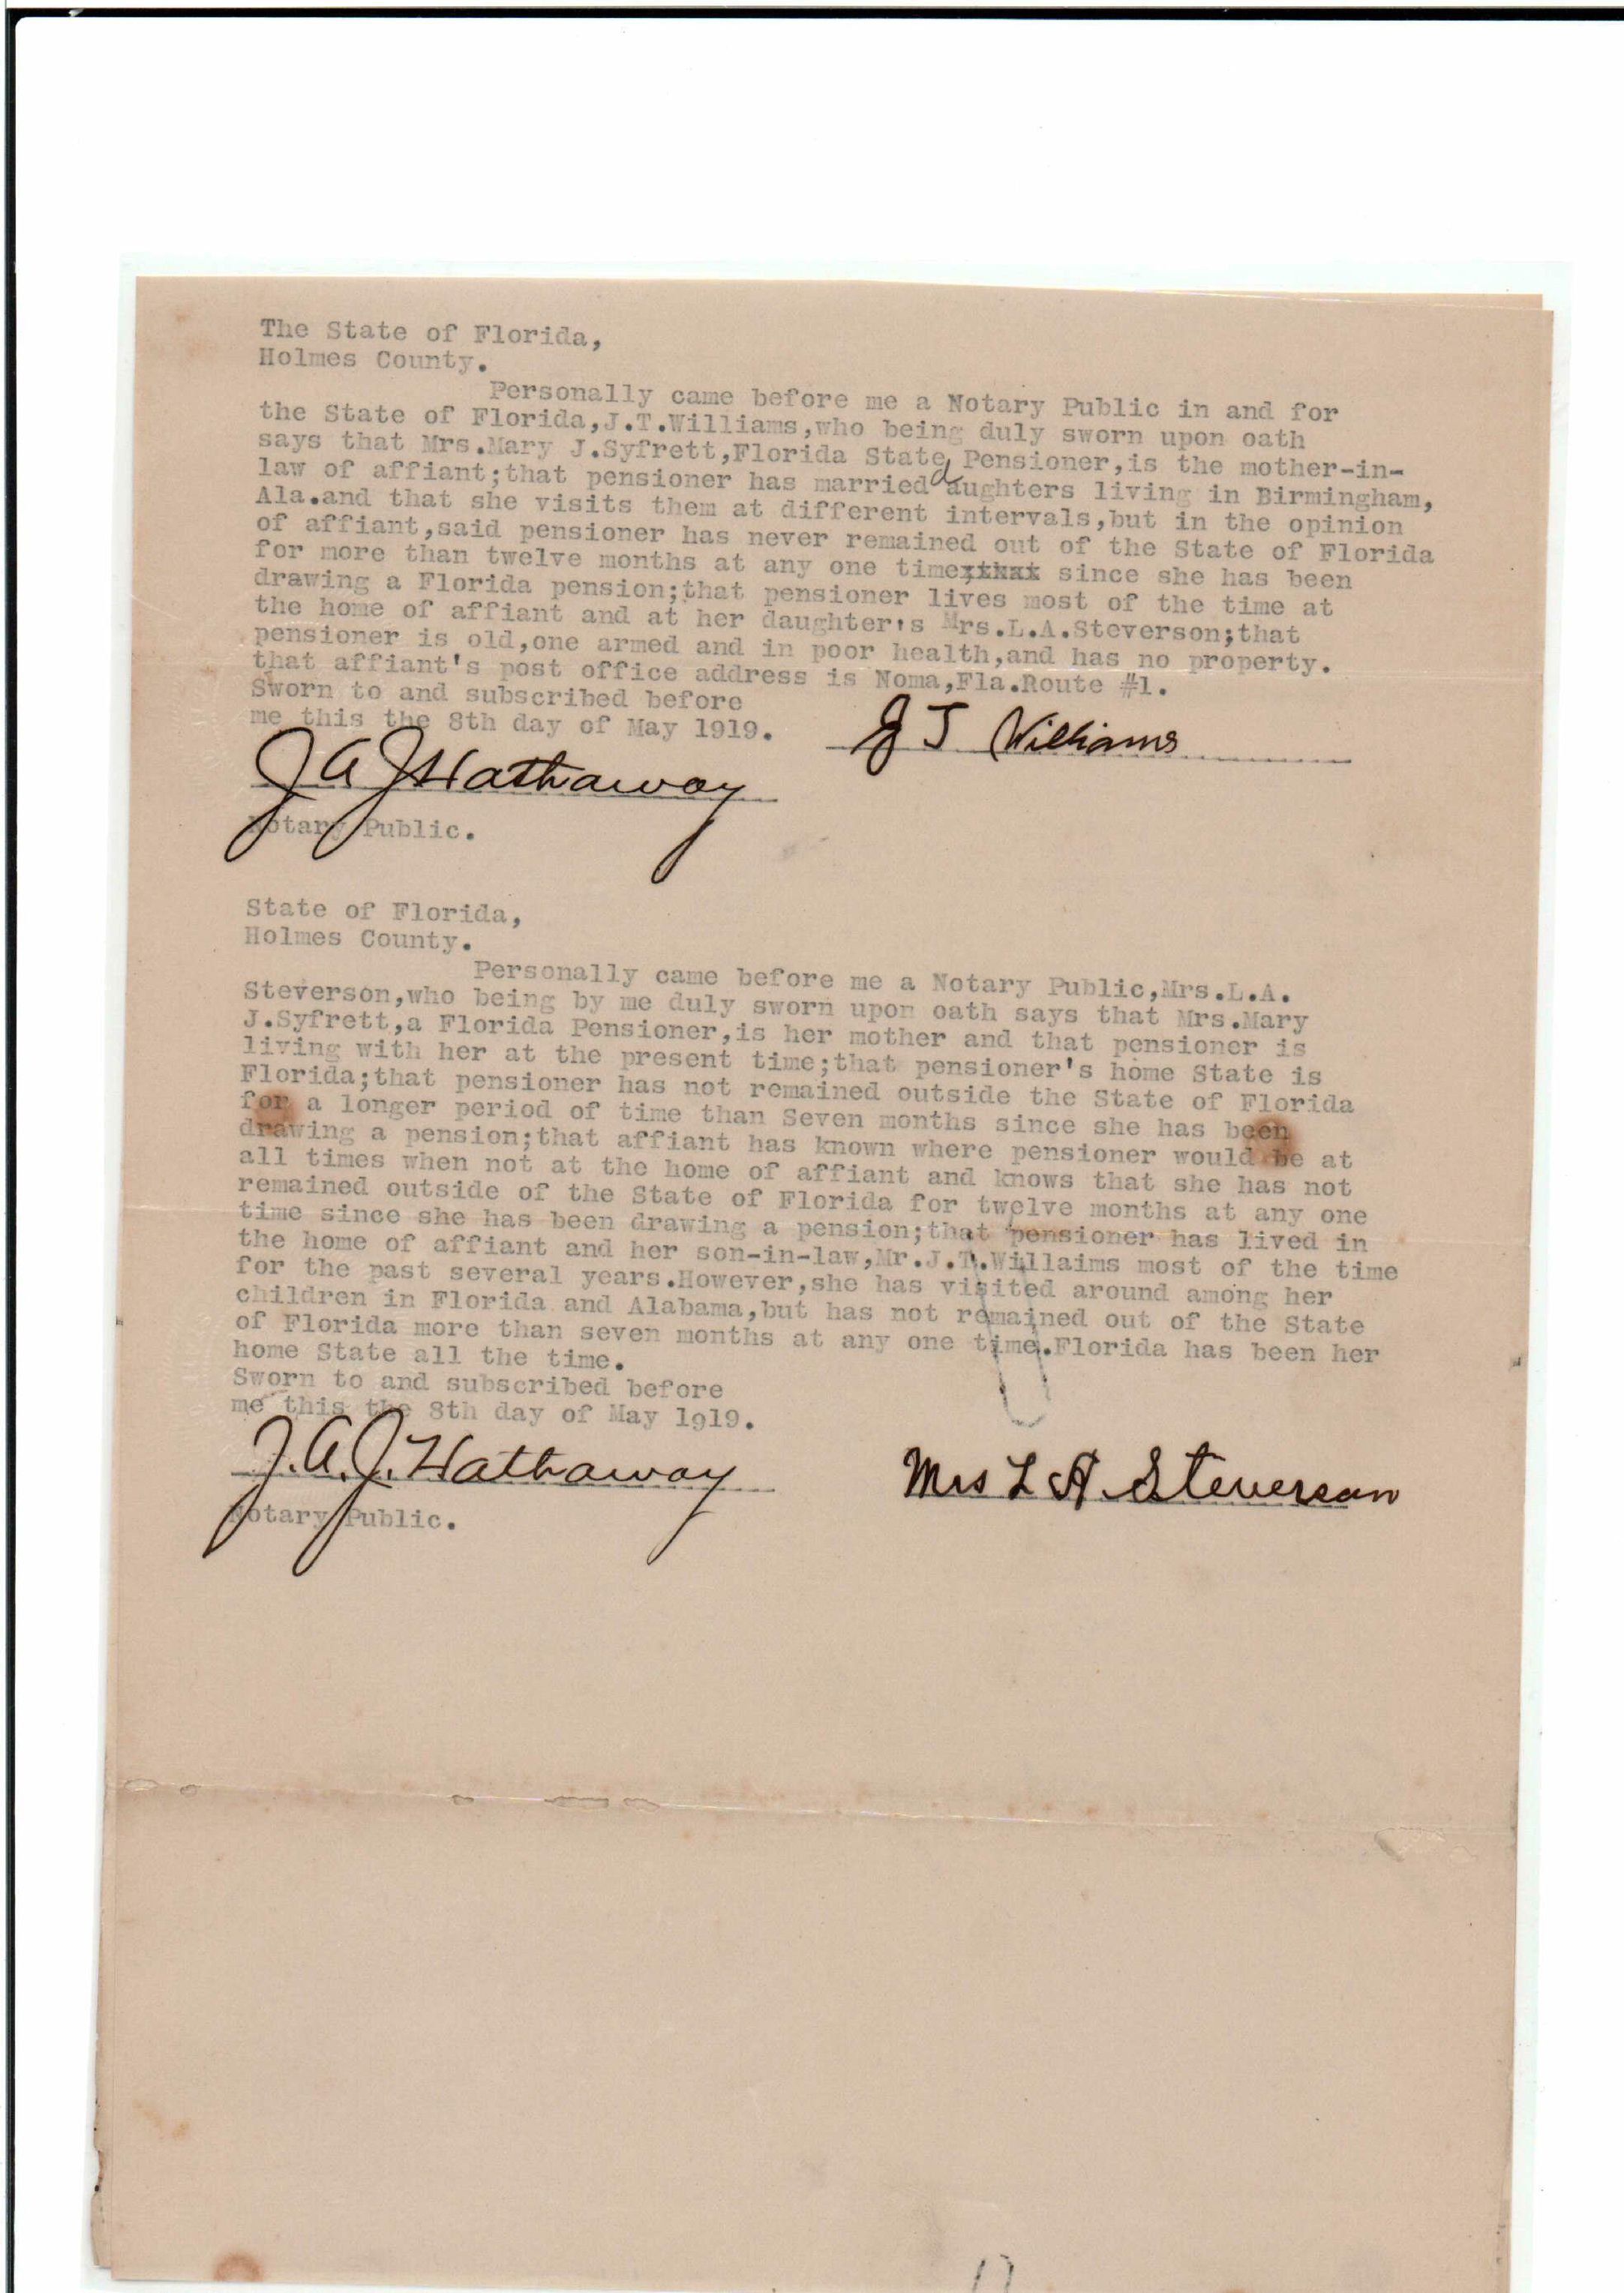 The State of Florida,
Holmes County.
Personally came before me a Notary Public in and for
the State of Florida,J.T.Williams,who being duly sworn upon oath
says that Mrs.Mary J.Syfrett,Florida State Pensioner,is the mother-in-
law of affiant;that pensioner has married daughters living in Birmingham,
Ala.and that she visits them at different intervals,but in the opinion
of affiant,said pensioner has never remained out of the State of Florida
for more than twelve months at any one time since she has been
drawing a Florida pension;that pensioner lives most of the time at
the home of affiant and at her daughter's Mrs.L.A.Steverson;that
pensioner is old,one armed and in poor health,and has no property.
that affiant's post office address is Noma,Fla.Route #1.
Sworn to and subscribed before
me this the 8th day of May 1919.
J T Williams
J A J Hathaway
Notary Public.
State of Florida,
Holmes County.
Personally came before me a Notary Public,Mrs.L.A.
Steverson,who being by me duly sworn upon oath says that Mrs.Mary
J.Syfrett,a Florida Pensioner,is her mother and that pensioner is
living with her at the present time;that pensioner's home State is
Florida;that pensioner has not remained outside the State of Florida
for a longer period of time than Seven months since she has been
drawing a pension;that affiant has known where pensioner would be at
all times when not at the home of affiant and knows that she has not
remained outside of the State of Florida for twelve months at any one
time since she has been drawing a pension;that pensioner has lived in
the home of affiant and her son-in-law,Mr.J.T.Willaims most of the time
for the past several years.However,she has visited around among her
children in Florida and Alabama,but has not remained out of the State
of Florida more than seven months at any one time.Florida has been her
home State all the time.
Sworn to and subscribed before
me this the 8th day of May 1919.
J.A.J.Hathaway
Mrs L A Steverson
Notary Public.